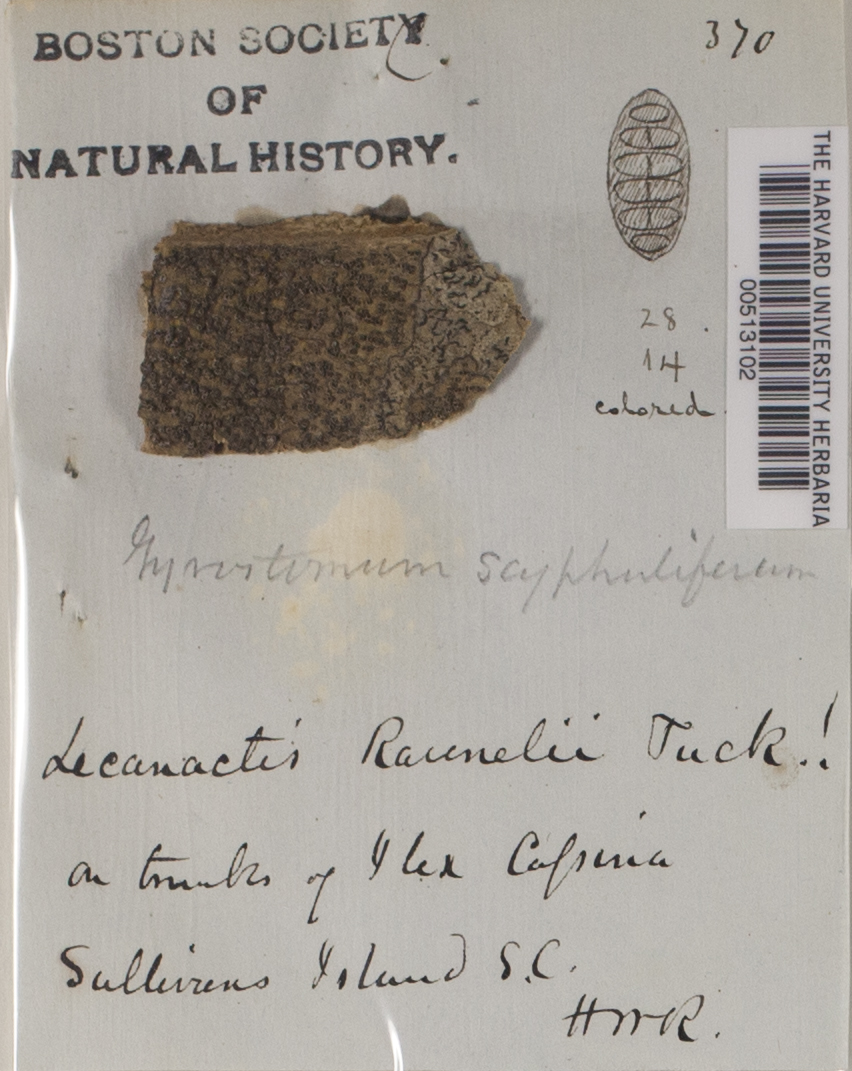 BOSTON SOCIETY
OF
NATURAL HISTORY.
370
THE HARVARD UNIVERSITY HERBARIA
00513102
28
14
colored
Gyrostomum scyphuliferum
Lecanactis Ravenelii Tuck.!
on trunks of Ilex Cassina
Sullivans Island S.C.
HWR.